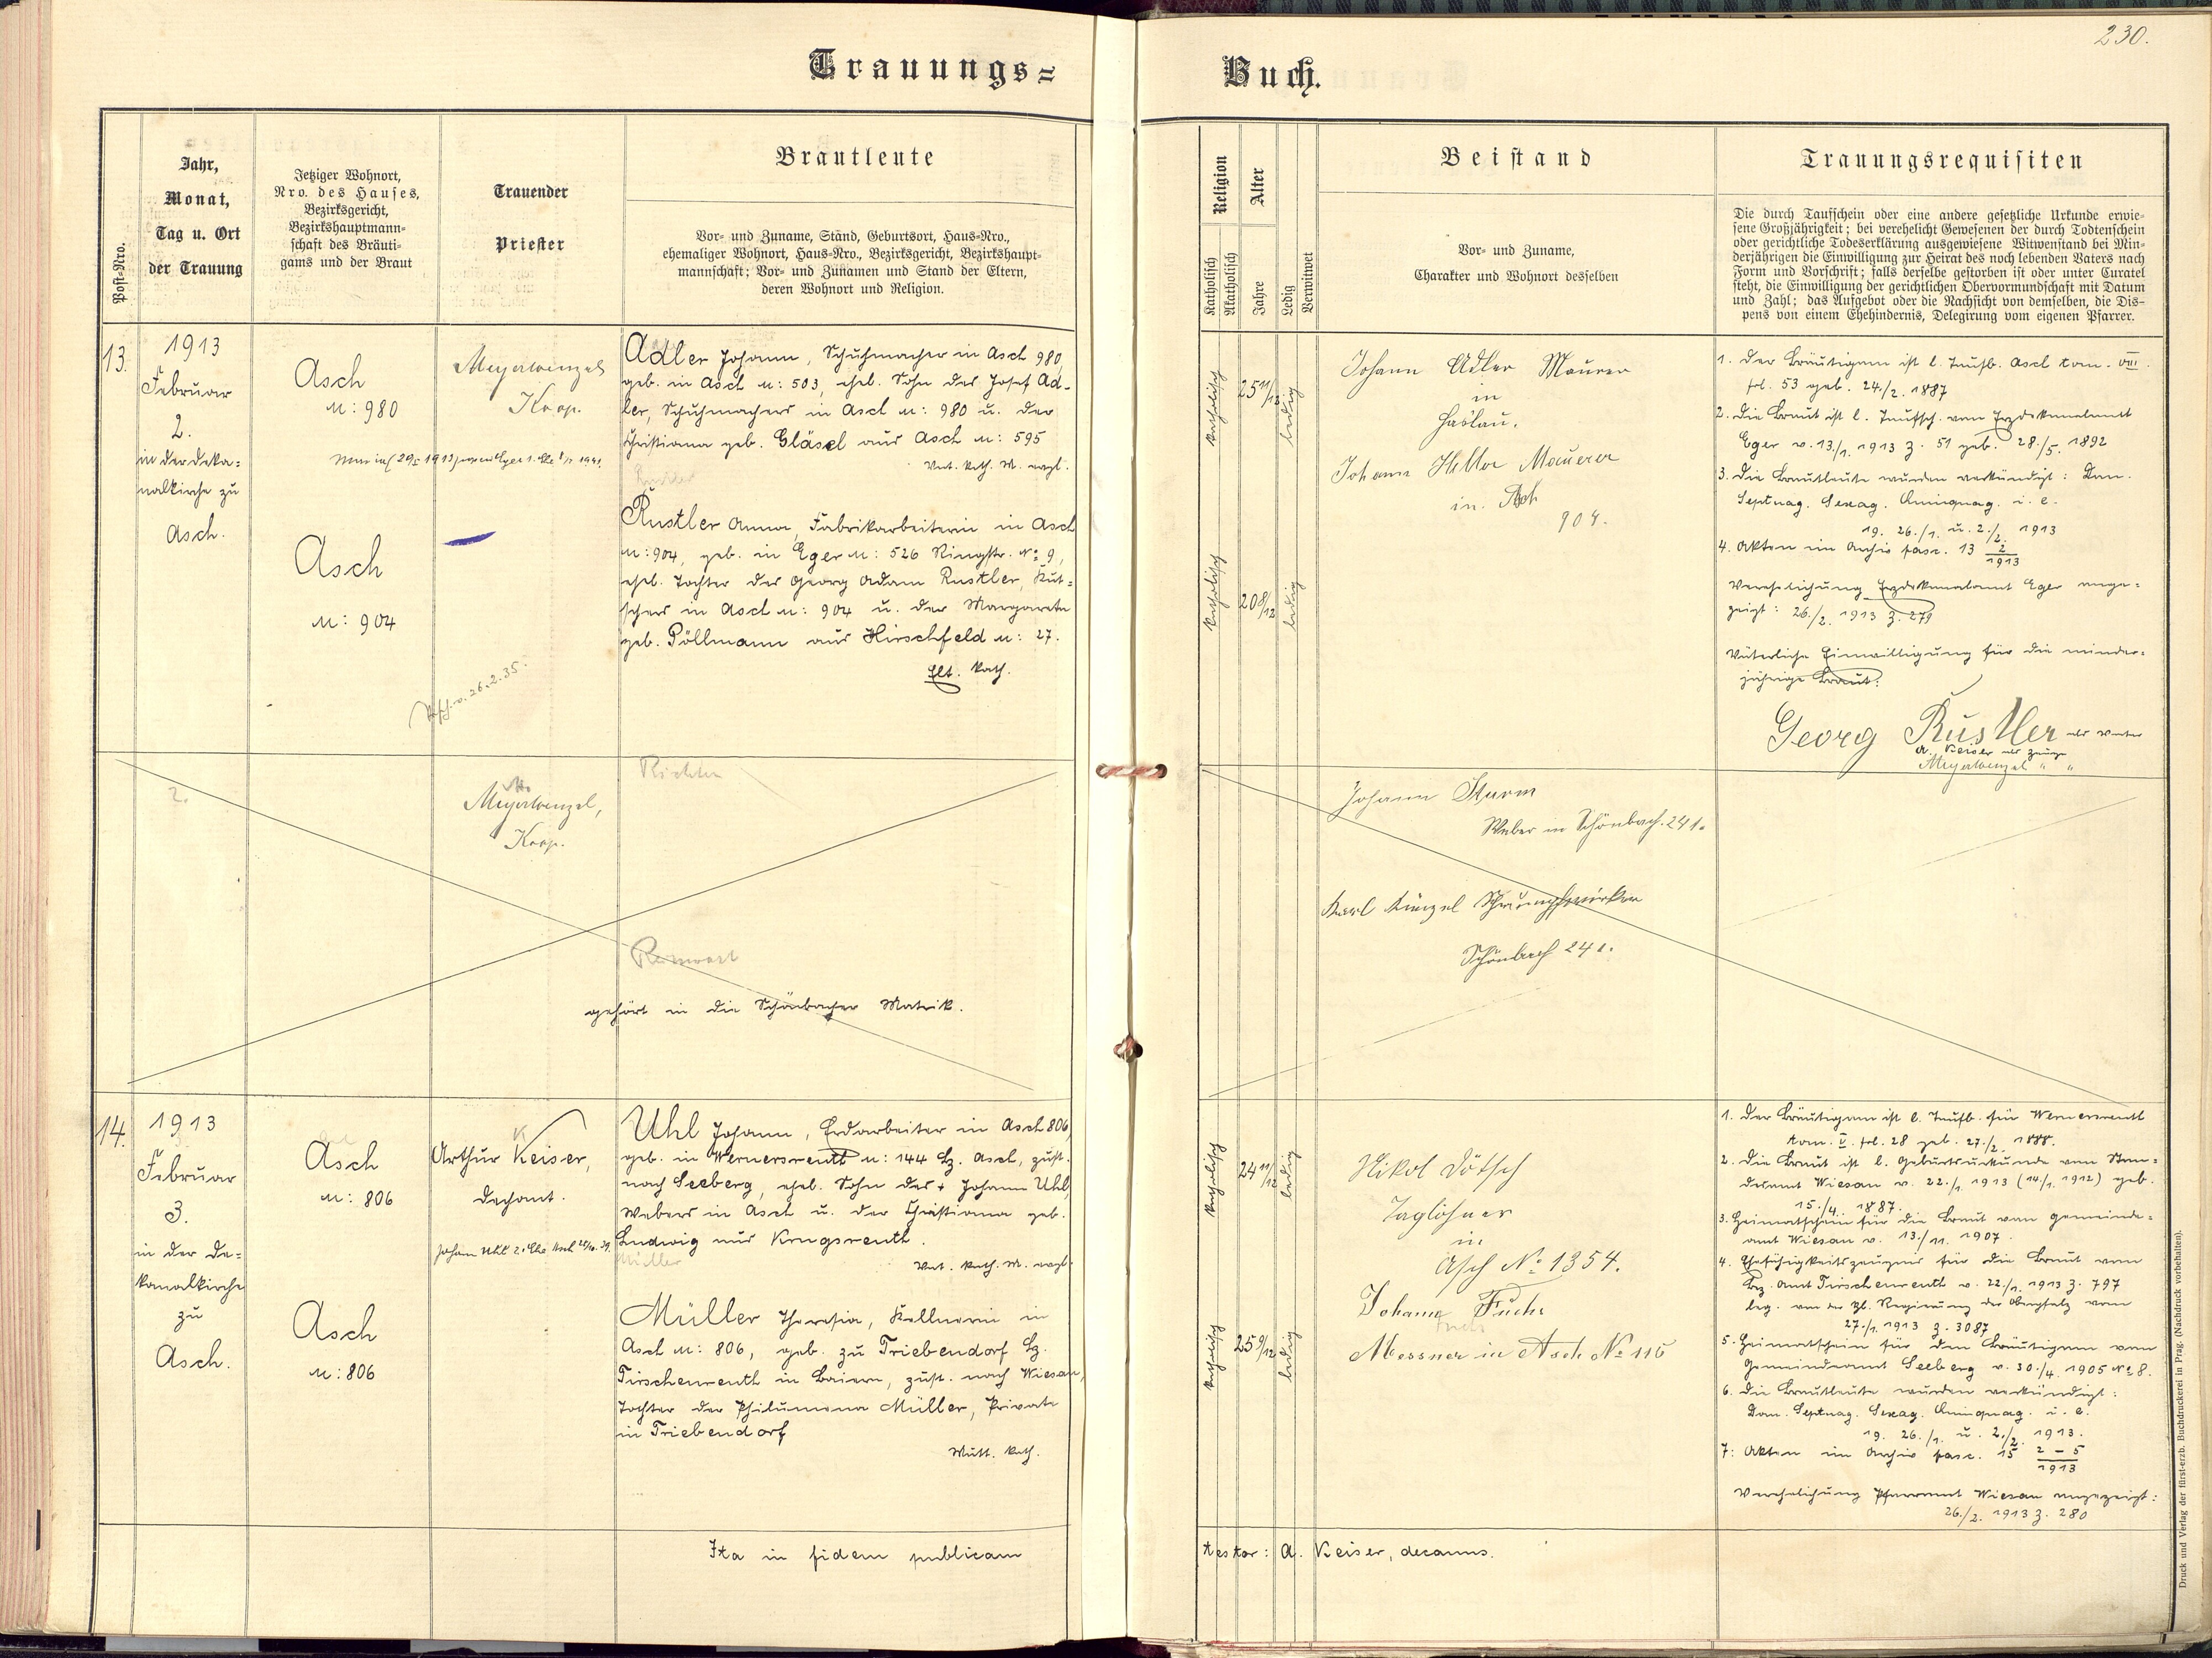 230.
Trauungs=
Buch.
Post-Nro.
Jahr,
Monat,
Tag u. Ort
der Trauung
Jetziger Wohnort,
Nro. des Hauses,
Bezirksgericht,
Bezirkshauptmann-
schaft des Bräuti-
gams und der Braut
Trauender
Priester
Brautleute
Vor- und Zuname, Stand, Geburtsort, Haus-Nro.,
ehemaliger Wohnort, Haus-Nro., Bezirksgericht, Bezirkshaupt-
mannschaft; Vor- und Zunamen und Stand der Eltern,
deren Wohnort und Religion.
Religion
Katholisch
Akatholisch
Alter
Jahre
Ledig
Verwitwet
Beistand
Vor- und Zuname,
Charakter und Wohnort desselben
Trauungsrequisiten
Die durch Taufschein oder eine andere gesetzliche Urkunde erwie-
sene Großjährigkeit; bei verehelicht Gewesenen der durch Todtenschein
oder gerichtliche Todeserklärung ausgewiesene Witwenstand bei Min-
derjährigen die Einwilligung zur Heirat des noch lebenden Vaters nach
Form und Vorschrift; falls derselbe gestorben ist oder unter Curatel
steht, die Einwilligung der gerichtlichen Obervormundschaft mit Datum
und Zahl; das Aufgebot oder die Nachsicht von demselben, die Dis-
pens von einem Ehehindernis, Delegirung vom eigenen Pfarrer.
13.
1913
Februar
2.
in der Deka=
nalkirche zu
Asch.
Asch
N: 980
Asch
N: 904
Meyerwenzel
Koop.
26.2.35.
Adler Johann, Schuhmacher in Asch 980,
geb. in Asch N: 503, ehel. Sohn des Josef Ad-
ler, Schuhmachers in Asch N: 980 u. der
Christiana geb. Gläsel aus Asch N: 595
Vat. kath. M. evgl.
Rustler Anna, Fabrikarbeiterin in Asch
N: 904, geb. in Eger N: 526 Ringstr. No 9,
ehel. Tochter des Georg Adam Rustler, Kut=
schers in Asch N: 904 u. der Margareta
geb. Pöllmann aus Hirschfeld N: 27.
Elt. kath.
katholisch
25 11/12
ledig
katholisch
20 8/12
ledig
Johann Adler Maurer
in
Haslau.
Johann Maurer
in Asch
904.
1. Der Bräutigam ist l. Taufb. Asch tom. VIII.
fol. 53 geb. 24./2. 1887
2. Die Braut ist l. Taufsch. vom Erzdekanalamt
Eger v. 13/1. 1913 Z. 51 geb. 28./5. 1892
3. Die Brautleute wurden verkündigt: Dom.
Septuag. Sexag. Quinquag. i. e.
19. 26./1. u. 2./2. 1913
4. Akten im Archiv fasc. 13 2/1913
Verehelichung Erzdekanalamt Eger ange=
zeigt: 26./2. 1913 Z. 279
Väterliche Einwilligung für die minder=
jährige Braut:
Georg Rustler als Vater
A. Keiser als Zeuge
Meyerwenzel " "
2.
Meyerwenzel,
Koop.
Richter
gehört in die Schönbacher Matrik.
Johann Sturm
Weber in Schönbach 241.
Karl Künzel Strumpfwirker
Schönbach 241.
14.
1913
Februar
3.
in der De=
kanalkirche
zu
Asch.
Asch
N: 806
Asch
N: 806
Arthur Keiser,
Dechant.
Uhl Johann, Erdarbeiter in Asch 806,
geb. in Wernersreuth N: 144 Bz. Asch, zust.
nach Seeberg, ehel. Sohn des + Johann Uhl,
Webers in Asch u. der Christiana geb.
Ludwig aus Krugsreuth.
Müller
Vat. kath. M. evgl.
Müller Theresia, Kellnerin in
Asch N: 806, geb. zu Triebendorf Bz.
Tirschenreuth in Baiern, zust. nach Wiesau,
Tochter der Philumena Müller, Private
in Triebendorf
Mutt. kath.
katholisch
24 11/12
ledig
katholisch
25 9/12
ledig
Nikol Dötsch
Taglöhner
in
Asch No 1354.
Johann Fuchs
Messner in Asch No 116
1. Der Bräutigam ist l. Taufb. für Wernersreuth
tom. V. fol. 28 geb. 27./2. 1888.
2. Die Braut ist l. Geburtsurkunde vom Stan=
desamt Wiesau v. 22./1. 1913 (14./1. 1912) geb.
15./4. 1887.
3. Heimatschein für die Braut vom Gemeinde=
amt Wiesau v. 13./11. 1907.
4. Ehefähigkeitszeugnis für die Braut vom
Bez. Amt Tirschenreuth v. 22/1. 1913 Z. 797
leg. von der Kgl. Regierung der Oberpfalz vom
27./1. 1913 Z. 3087
5. Heimatschein für den Bräutigam vom
Gemeindeamt Seeberg v. 30./4. 1905 No 8.
6. Die Brautleute wurden verkündigt:
Dom. Septuag. Sexag. Quinquag. i. e.
19. 26./1. u. 2./2. 1913.
7. Akten im Archiv fasc. 15 2-5/1913
Verehelichung Pfarramt Wiesau angezeigt:
26./2. 1913 Z. 280
Ita in fidem publicam
testor: A. Keiser, decanus.
Druck und Verlag der fürst-erzb. Buchdruckerei in Prag. (Nachdruck vorbehalten).